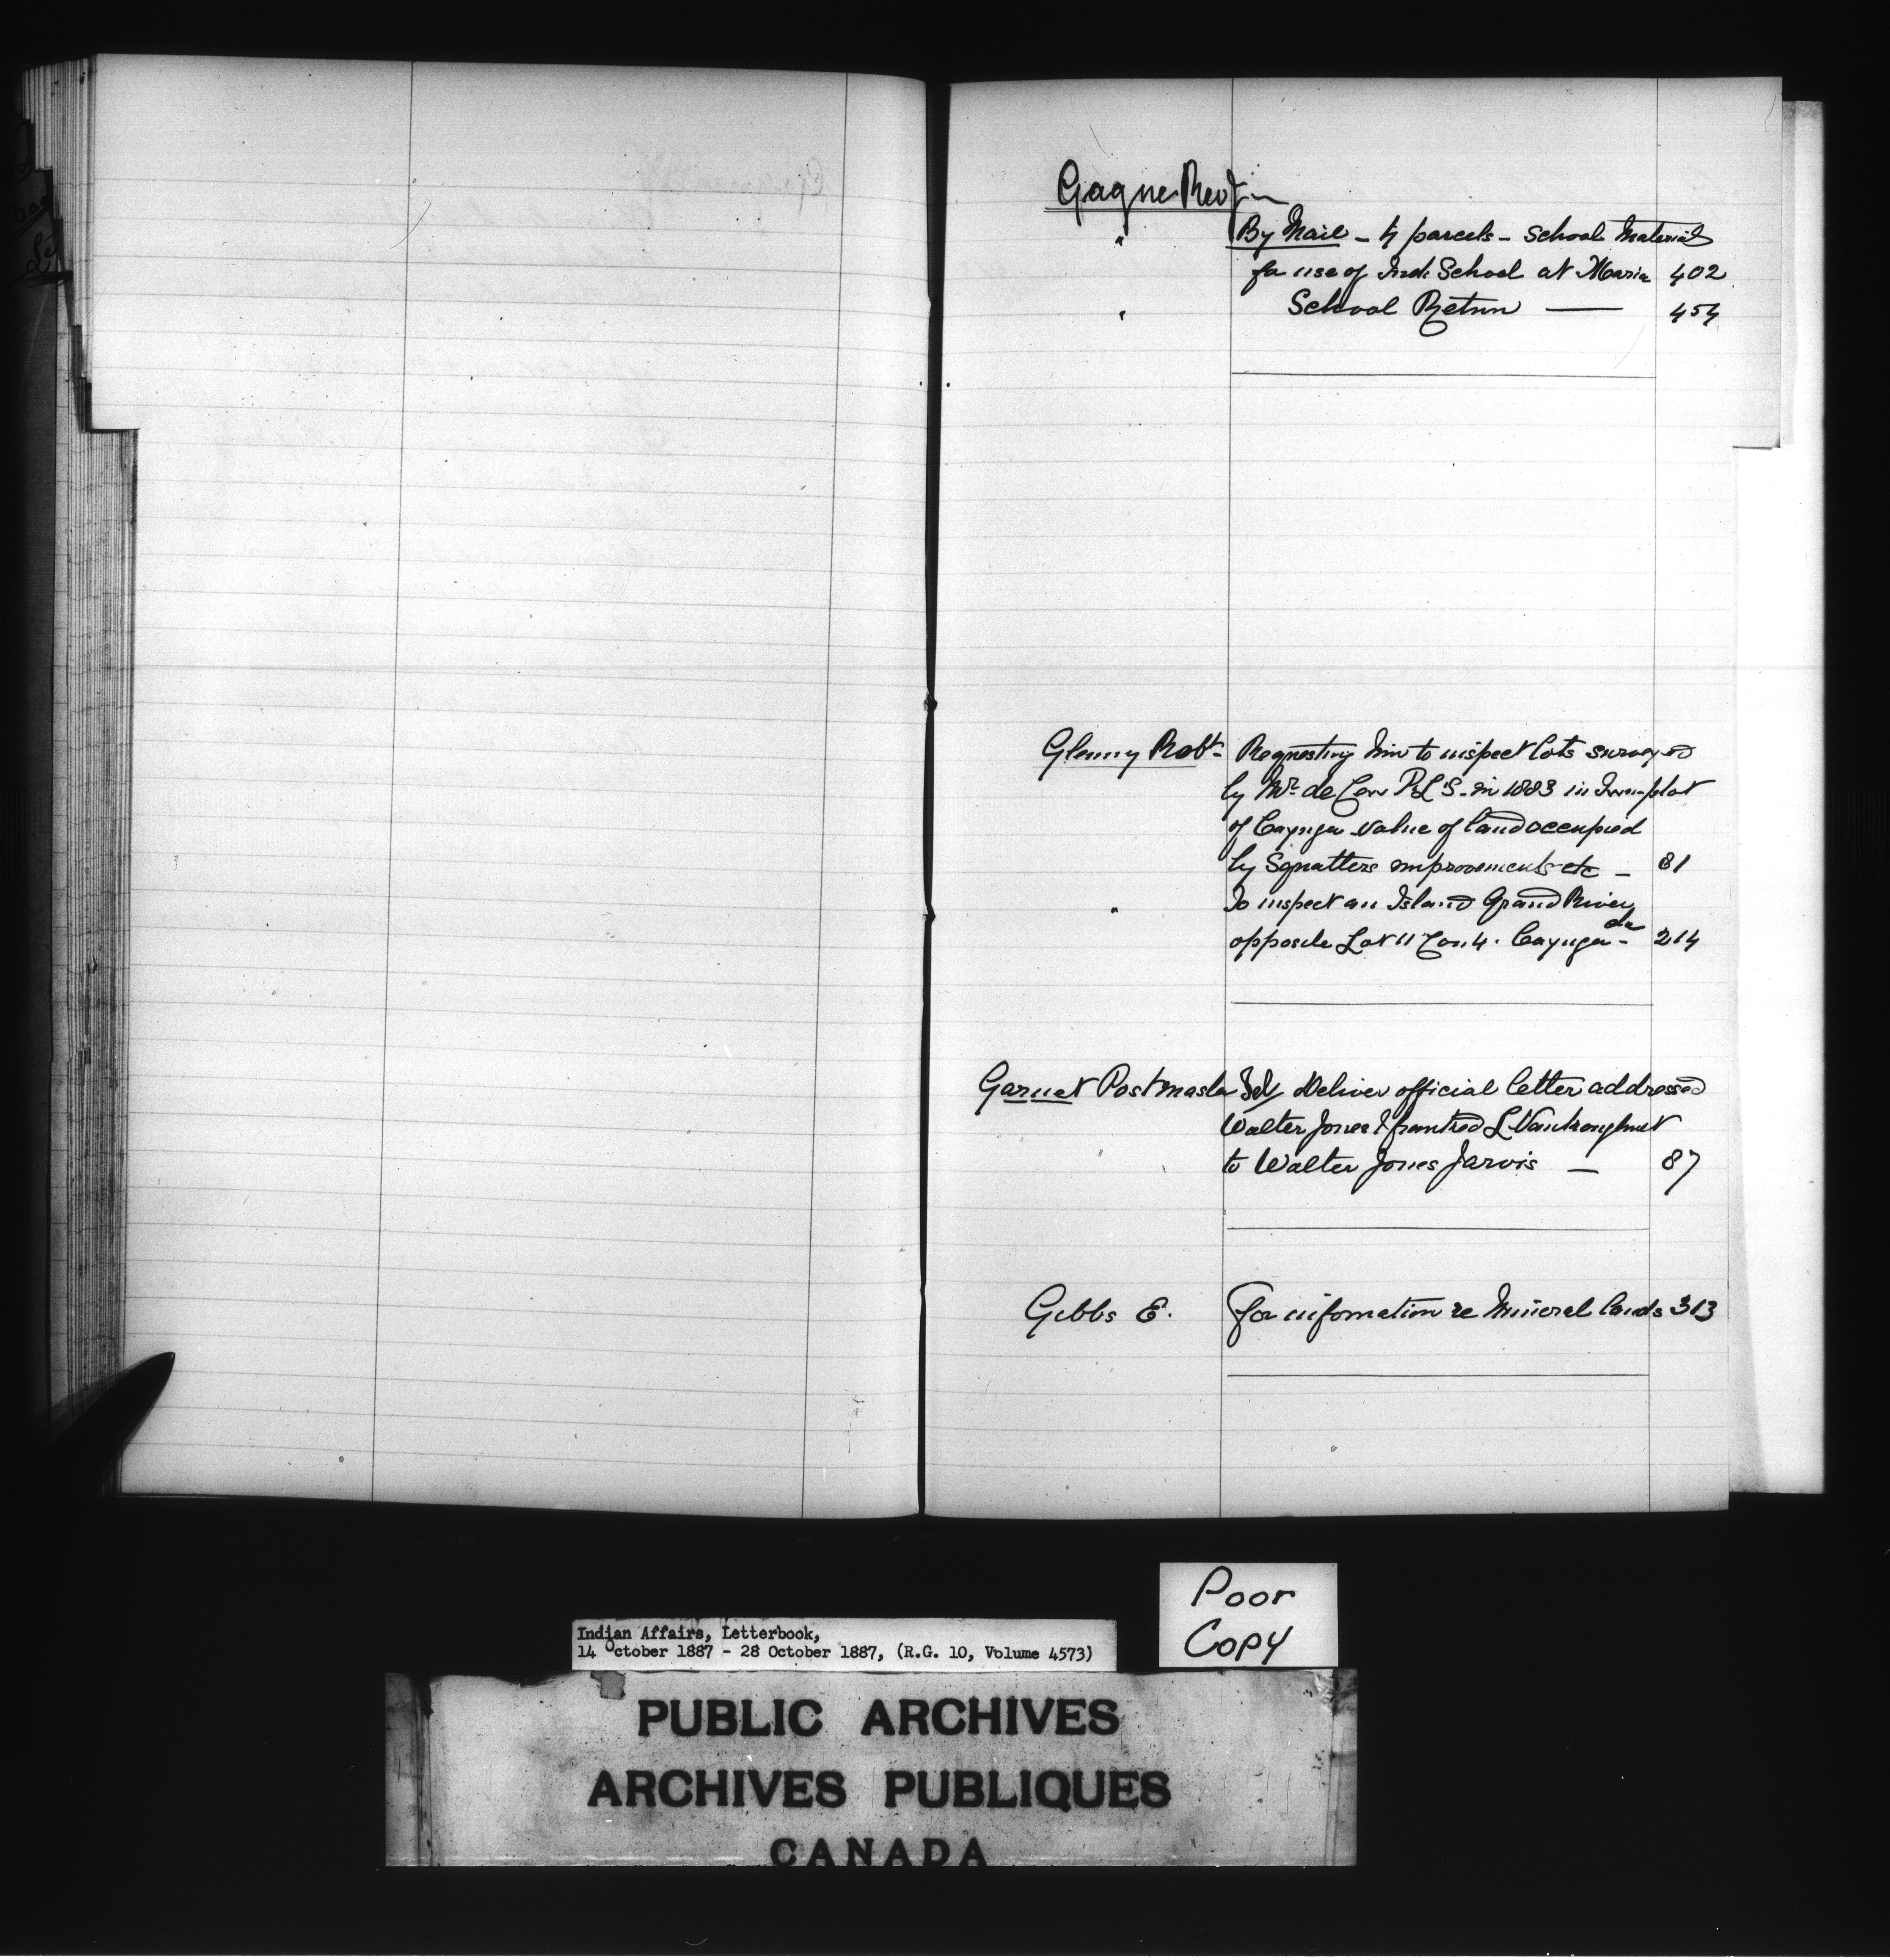 Gagne Rev J
" By Mail - 4 parcels - School Material
for use of Ind. School at Maria 402
" School Return — 454
Glenny Robt - Requesting him to inspect lots surveyed
by Mr. de Cew P.L.S. in 1883 in Town-plot
of Cayuga value of land occupied
by Squatters improvements etc - 81
" To inspect an Island Grand River
opposite Lot 11 Con. 4. Cayuga - do 214
Garnet Postmaster To deliver official letter addressed
Walter Jones & franked L Vankoughnet
to Walter Jones Jarvis — 87
Gibbs E. For information re Mineral lands 313
Poor
Copy
Indian Affairs, Letterbook,
14 October 1887 - 28 October 1887, (R.G. 10, Volume 4573)
PUBLIC ARCHIVES
ARCHIVES PUBLIQUES
CANADA